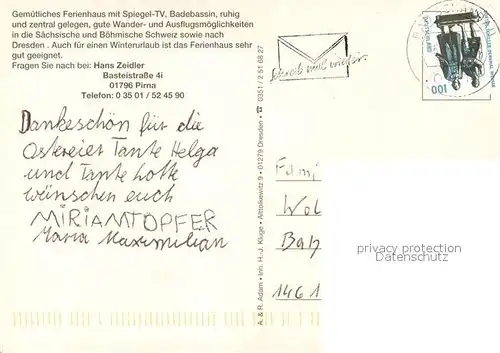 Gemütliches Ferienhaus mit Spiegel-TV, Badebassin, ruhig
und zentral gelegen, gute Wander- und Ausflugsmöglichkeiten
in die Sächsische und Böhmische Schweiz sowie nach
Dresden . Auch für einen Winterurlaub ist das Ferienhaus sehr
gut geeignet.
Fragen Sie nach bei: Hans Zeidler
Basteistraße 4i
01796 Pirna
Telefon: 0 35 01 / 52 45 90
Dankeschön für die
Ostereier Tante Helga
und Tante Lotte
wünschen euch
MIRIAM TÖPFER
Maria Maximilian
A. & R. Adam • Inh. H.-J. Kluge • Alttolkewitz 9 • 01279 Dresden • ☎ 0351 / 2 51 68 27
Schreib mal wieder.
DEUTSCHLAND
100
Fami
Wol
Bah
1461
privacy protection
AnsichtskartenPool